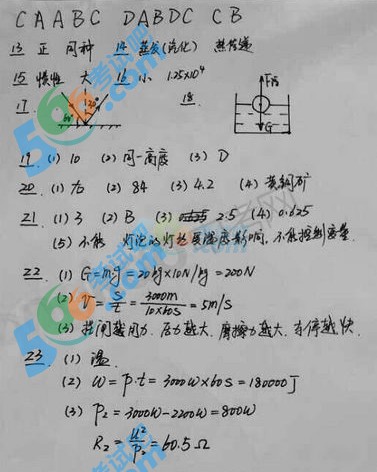 CAABC DABDC CB
13 正 同种 14 蒸发(汽化) 热传递
15 惯性 大 16 小 1.25×10⁴
17. 60° 30° 18. F浮 G
19. (1) 10 (2) 同一高度 (3) D
20. (1) 右 (2) 84 (3) 4.2 (4) 黄铜矿
21. (1) 3 (2) B (3) 2.5 (4) 0.625
(5) 不能 灯泡的灯丝受温度影响,不能控制变量.
22 (1) G=mg=20kg×10N/kg=200N
(2) v=s/t=3000m/10×60s=5m/s
(3) 捏闸越用力,压力越大,摩擦力越大,车停越快.
23 (1) 温
(2) W=P·t=3000W×60s=180000J
(3) P₂=3000W-2200W=800W
R₂=U²/P₂=60.5Ω
566考试吧